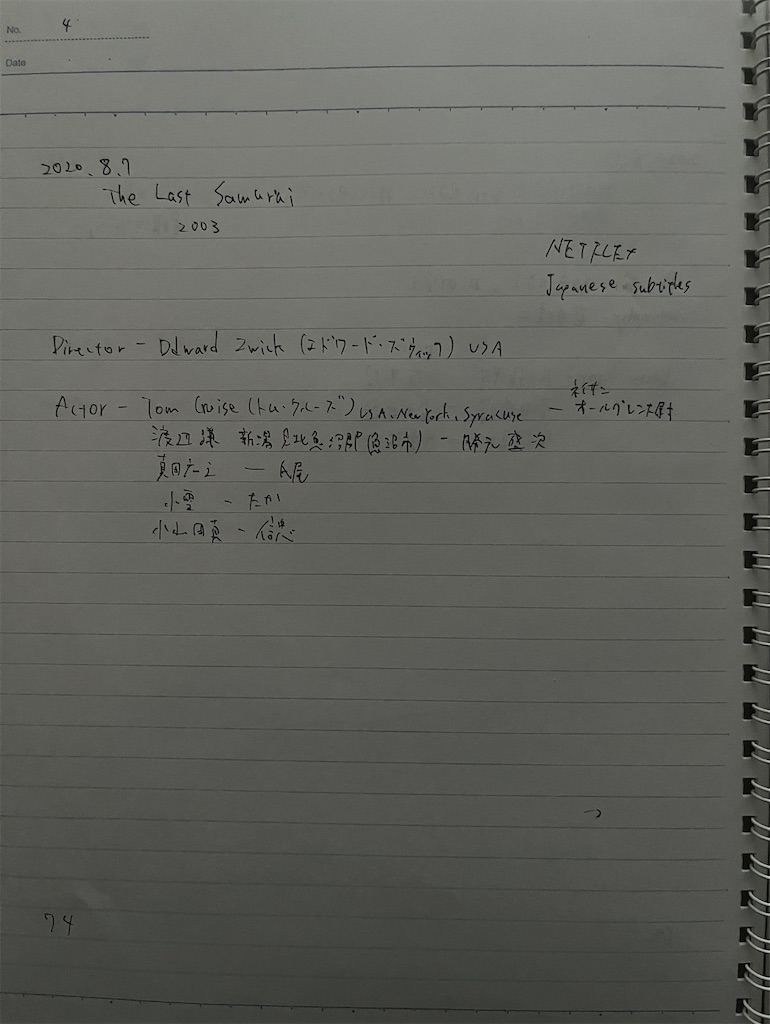 No. 4
Date
2020.8.7
The Last Samurai
2003
NETFLEX
Japanese subtitles
Director - Ddward Zwick (エドワード・ズウィック) USA
Actor - Tom Cruise (トム・クルーズ) USA. New York. Syracuse - ネイサン
オールグレン大尉
渡辺謙 新潟県北魚沼郡(魚沼市) - 勝元盛次
真田広之 - 氏尾
小雪 - たか
小山田真 - 信忠
→
74